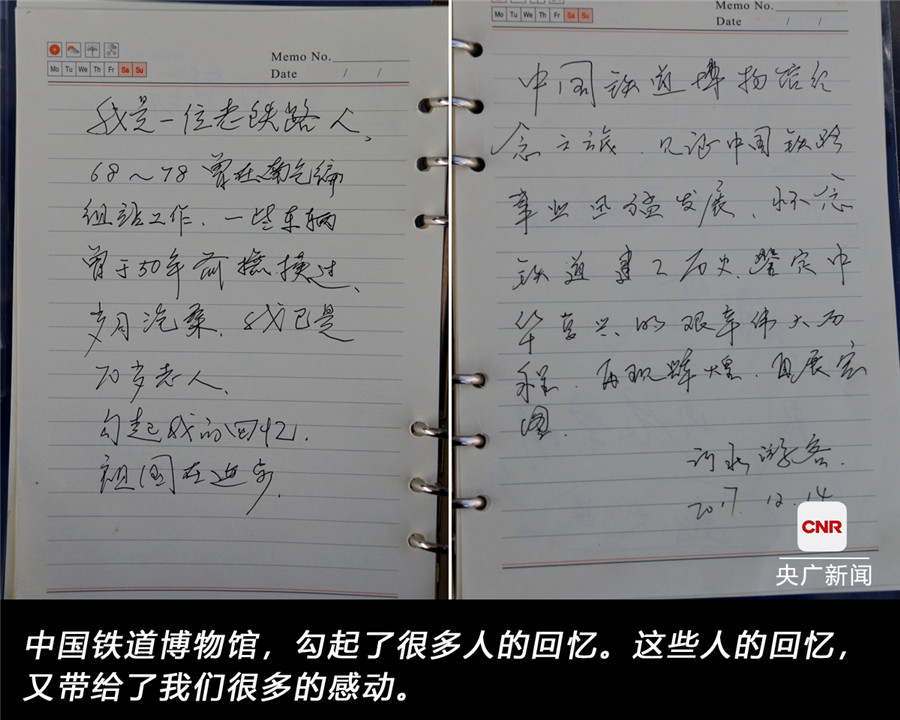 Memo No.
Mo Tu We Th Fr Sa Su
Date / /
我是一位老铁路人、
68～78曾在南仓编
组站工作、一些车辆
曾于50年前抚摸过、
岁月沧桑、我已是
70岁老人、
勾起我的回忆.
祖国在进步.
Memo No.
Mo Tu We Th Fr Sa Su
Date / /
中国铁道博物馆纪
念之旅、见证中国铁路
事业迅猛发展、怀念
铁道建工历史、鉴定中
华复兴的艰辛伟大历
程、再现辉煌、再展宏
图.
河北游客.
2017.12.14
CNR
央广新闻
中国铁道博物馆，勾起了很多人的回忆。这些人的回忆，
又带给了我们很多的感动。